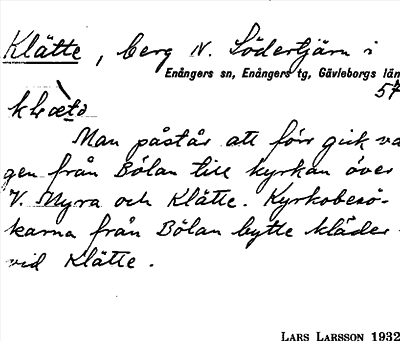 Klätte, berg N. Södertjärn i
Enångers sn, Enångers tg, Gävleborgs län
57
klæ̀tə
Man påstår att förr gick vä-
gen från Bölan till kyrkan över
V. Myra och Klätte. Kyrkobesö-
karna från Bölan bytte kläder
vid Klätte.
LARS LARSSON 1932